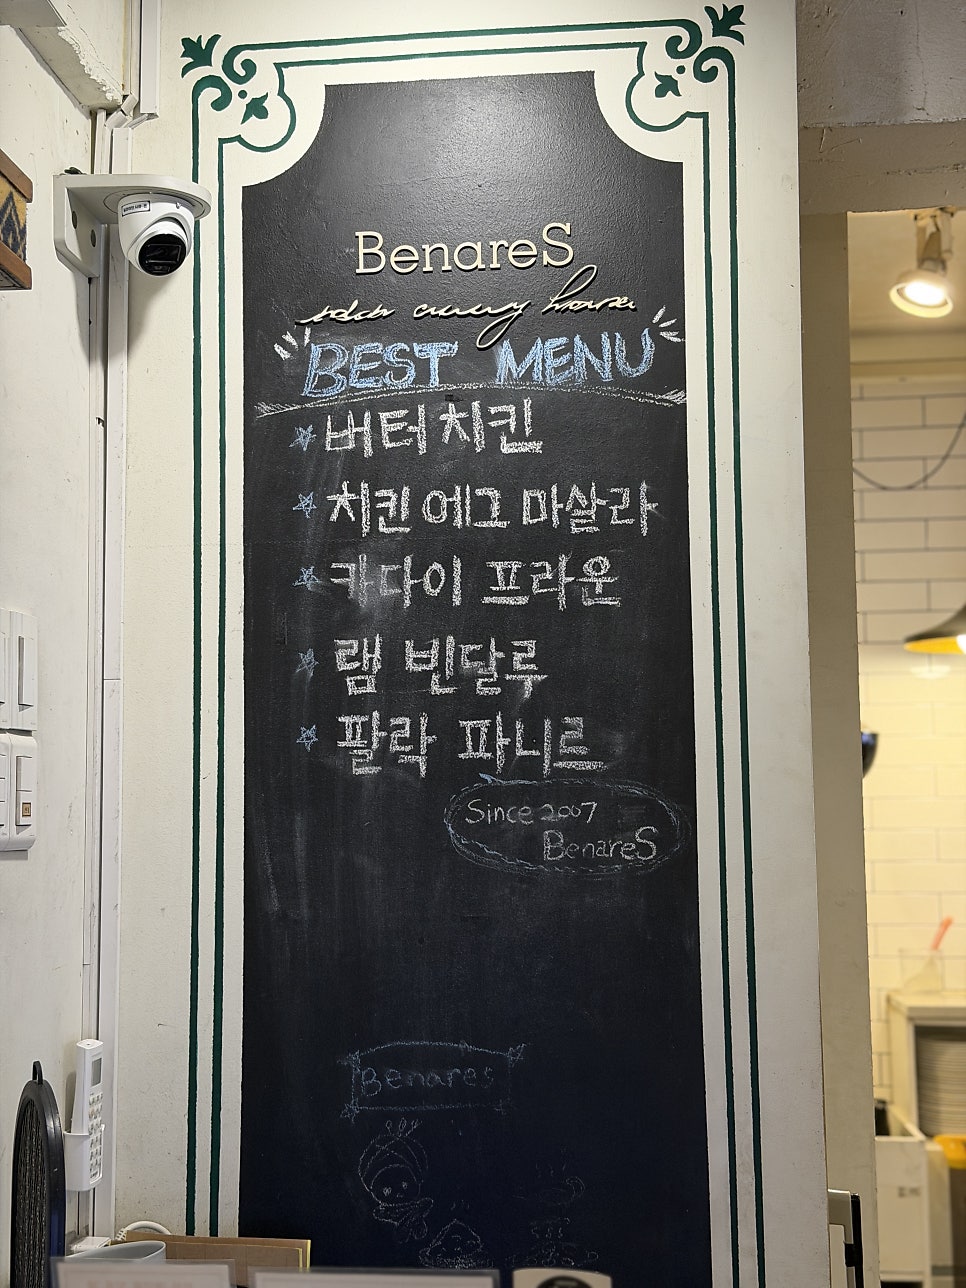 BenareS
curry house
BEST MENU
버터 치킨
치킨 에그 마살라
카다이 프라운
램 빈달루
팔락 파니르
Since 2007
BenareS
Benares